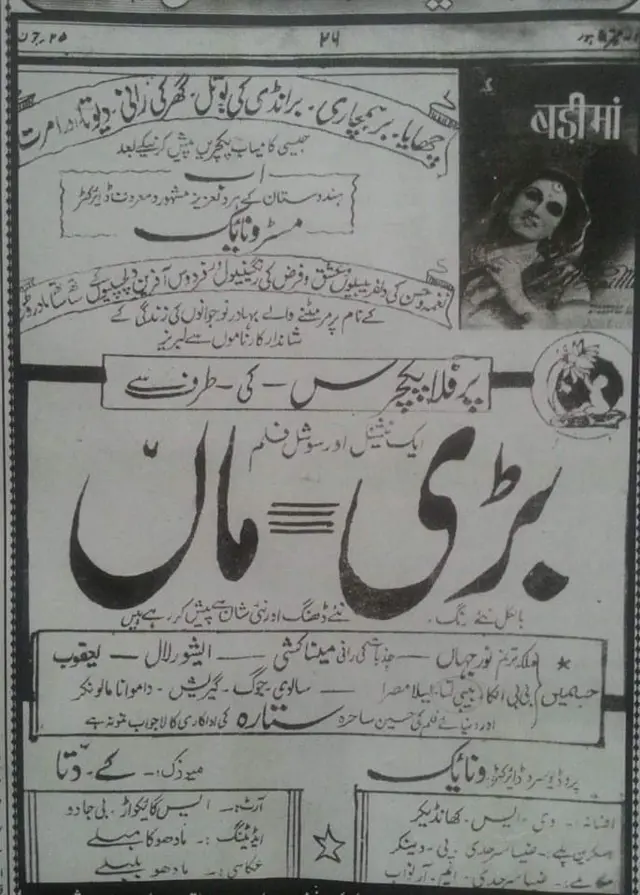 ۲۵ جون
۲۶
چھایا۔ برہمچاری۔ برانڈی کی بوتل۔ گھر کی رانی۔ دیوتا اور امرت
जैसی کامیاب پکچریں پیش کرنیکے بعد
اب
ہندوستان کے ہردلعزیز مشہور و معروف ڈائرکٹر
مسٹر ونائیک
बड़ीमां
نغمہ و حسن کی دلفریبیوں عشق و فرض کی رنگینیوں اور فردوس آفریں دلچسپیوں کے ساتھ ساتھ مادر وطن
کے نام پر مر مٹنے والے بہادر نوجوانوں کی زندگی کے
شاندار کارناموں سے لبریز
پرفلا پکچرس۔ کی۔ طرف سے
ایک نیشنل اور سوشل فلم
بڑی ماں
بالکل نئے رنگ۔ نئے ڈھنگ اور نئی شان سے پیش کر رہے ہیں
جسمیں
ملکہ ترنم نور جہاں — جذبات کی رانی میناکشی — ایشور لال — یعقوب
بے بی انکا (بیبی لتا) لیلا مصرا — سالوی۔ جوگ۔ گریش۔ داموانا مالونکر
اور دنیائے فلم کی حسین ساحرہ ستارہ کی اداکاری کا لاجواب نمونہ ہے
پروڈیوسر و ڈائرکٹر: ونائیک
میوزک:۔ کے۔ دتا
افسانہ:۔ وی۔ ایس۔ کھانڈیکر
سکرین پلے:۔ ضیا سرحدی۔ پی۔ دینکر
مکالمے:۔ ضیا سرحدی۔
آرٹ:۔ ایس گائیکواڑ۔ بی جادو
ایڈیٹنگ:۔ مادھو کامبلے
عکاسی:۔ مادھو بلبلے